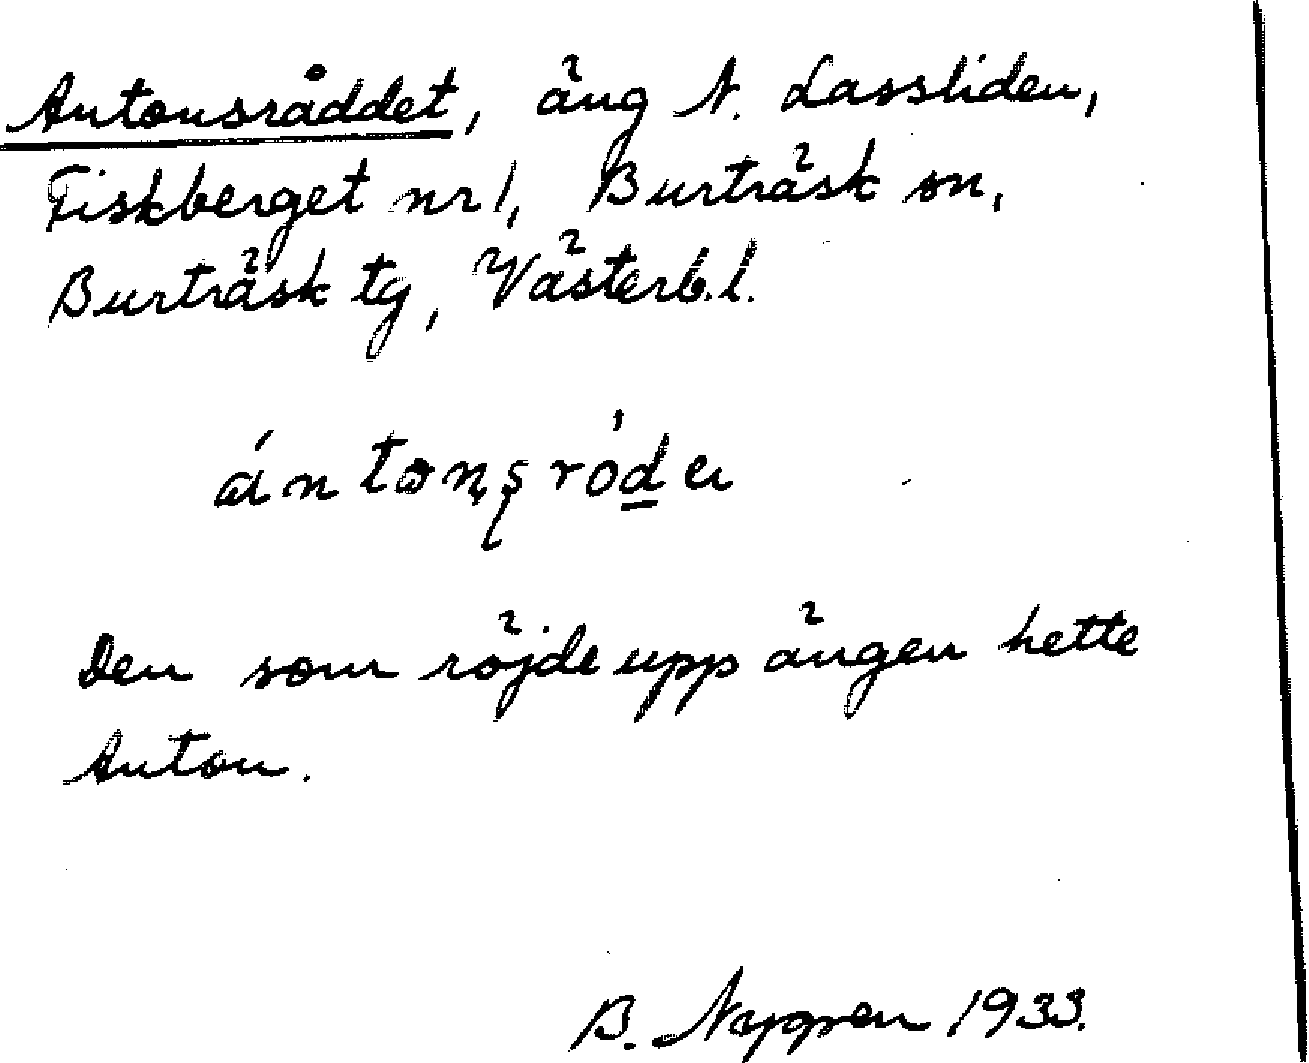 Antonsråddet, äng N. Lassliden,
Fiskberget nr 1, Burträsk sn,
Burträsk tg, Västerb.l.
Den som röjde upp ängen hette
Anton.
B. Nygren 1933.